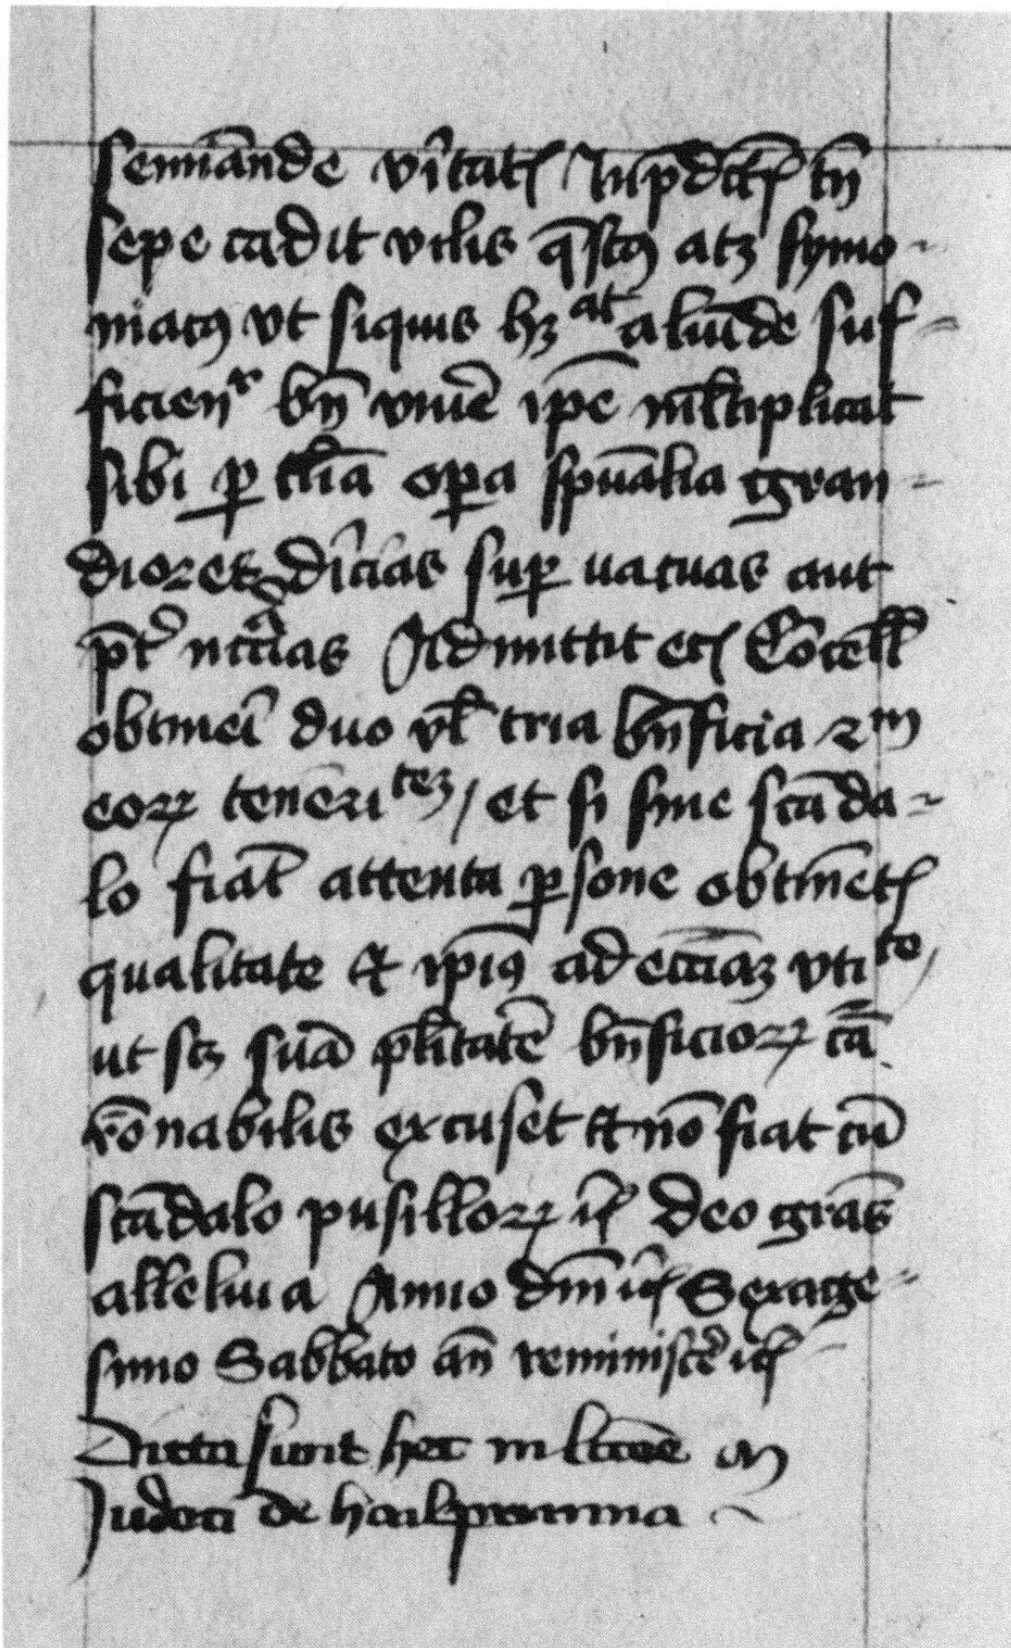 semīande v̄itatꝭ In p̄dictꝭ tn̄
sepe cadit vilis q̄stꝰ atꝫ symo-
niacꝰ vt siquis hꝫ at aliūde suf-
ficienr bn̄ viuē ip̄e ml̄tiplicat
sibi ꝑ tl̄ia oꝑa sp̄ualia gran-
diores dīcias suꝑ uacuas aut
p̄t nc̄c̄ias Admittit etꝭ Cōcell̄
obtineī duo vl̄ tria bn̄ficia 2m
eoꝝ teneri tez / et si sine scāda-
lo fiat̄ attenta ꝑsone obtinētꝭ
qualitate et ip̄iꝰ ad ecc̄iaꝫ vti te,
ut sꝫ suā pl̄itatē bn̄ficioꝝ cā
rōnabilis excuset et nō fiat cū
scādalo pusilloꝝ deo gr̄as
alleluia Anno dm̄ Sexage-
simo Sabbato an̄ reminiscē
Dicta sunt hec in lcc̄oē m
Judoci de hailprunna